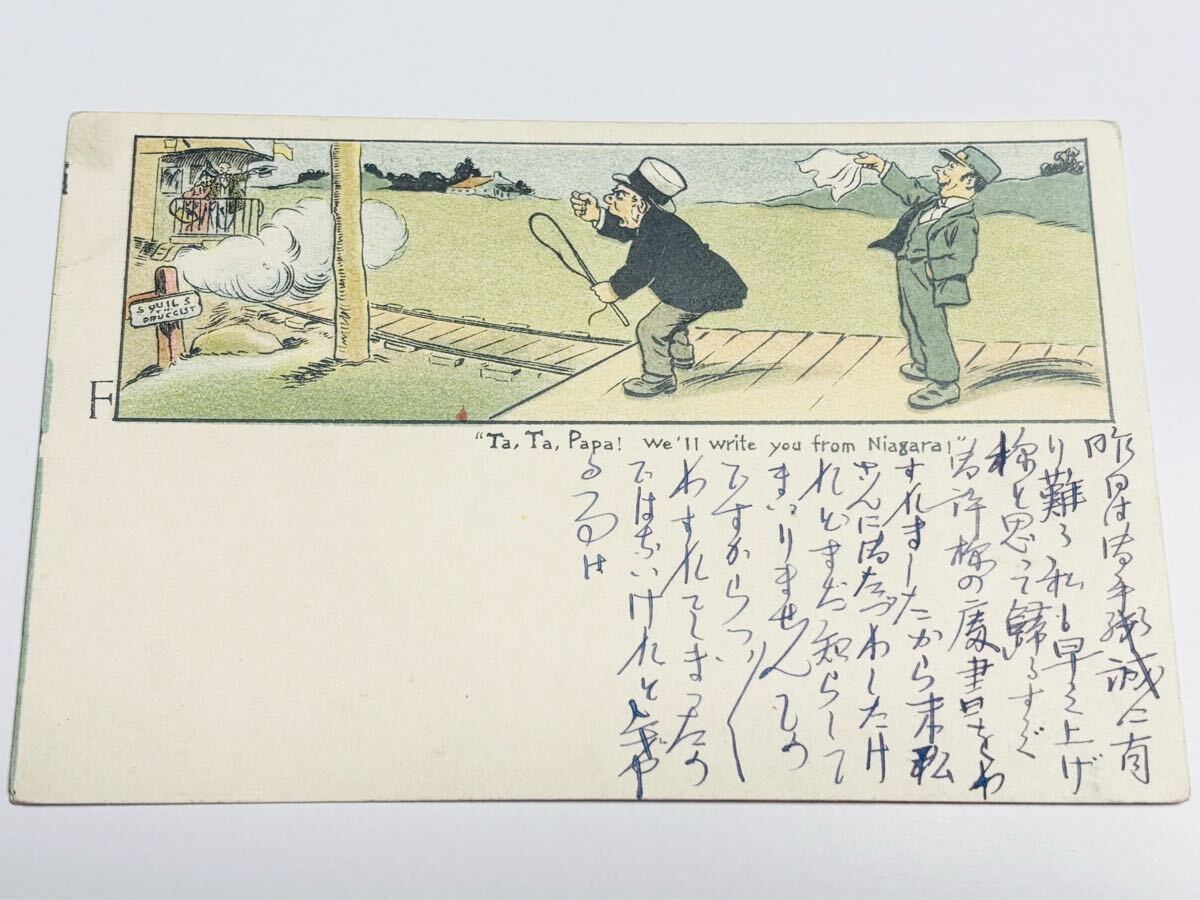 SQUILS
THE
DRUGGIST
F
"Ta, Ta, Papa! We'll write you from Niagara!"
昨日は御手紙誠に有
り難う私も早く上げ
様と思って帰るすぐ
御許様の度書をわ
すれましたから末私
さんに御たづねしたけ
れどまだ知らして
まいりませんもの
ですからつい
わすれてしまったの
ではないけれど